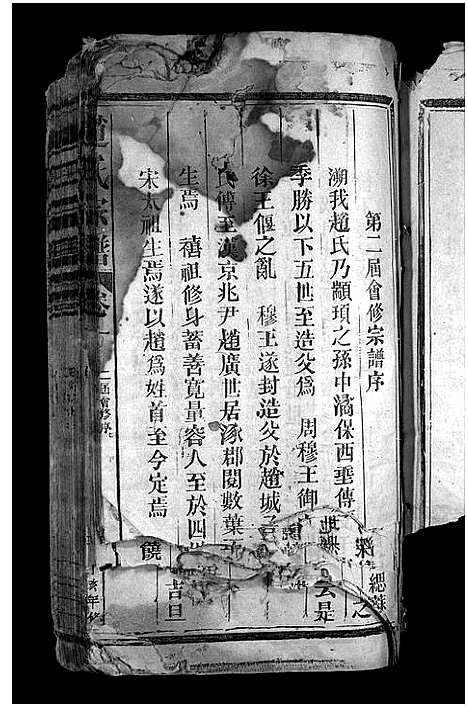 第二屆會修宗譜序
溯我趙氏乃顓頊之孫中潏保西垂傳
季勝以下五世至造父爲 周穆王御
徐王偃之亂 穆王遂封造父於趙城
氏傳至漢京兆尹趙廣世居涿郡閱數葉
生焉 禧祖修身蓄善寬量容人至於四
宋太祖生焉遂以趙爲姓首至今定焉
趙氏宗譜 卷
二屆會修序
緦麻
之
云是
吉旦
饒
年修